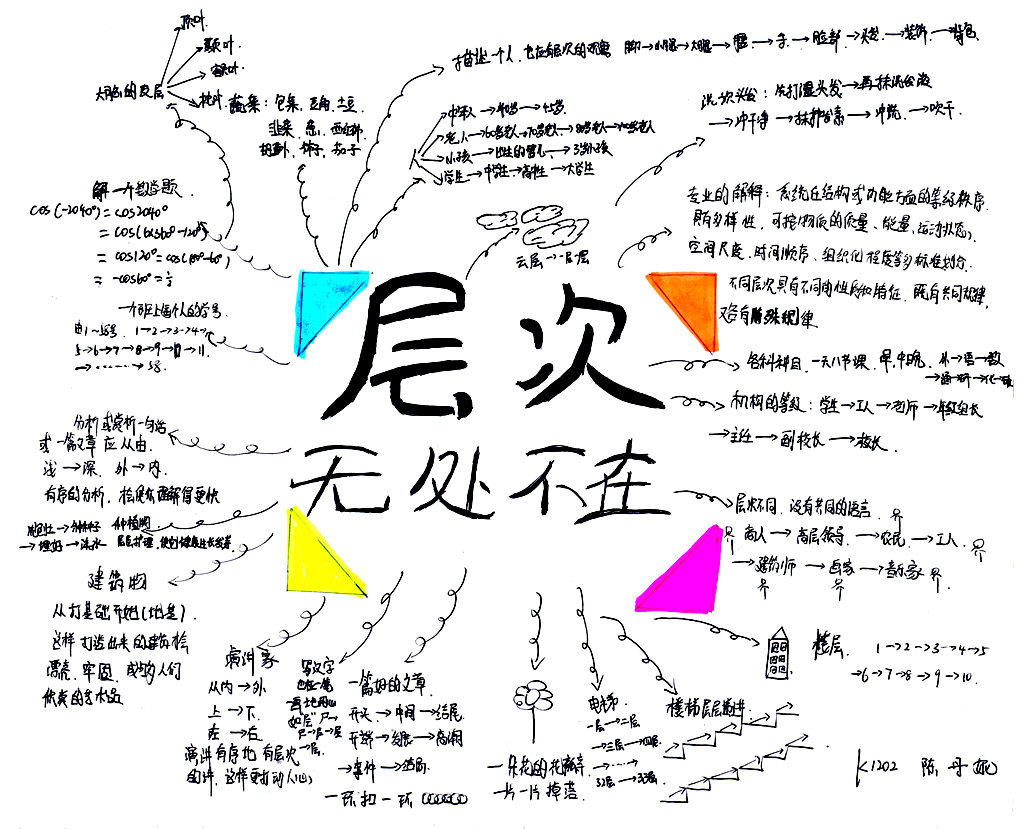 顶叶.
颞叶.
额叶.
大脑的皮层
枕叶.
描述一个人,也应有层次的观察 脚→小腿→大腿→腰→手→脸部→头发→装饰→背包
蔬菜:白菜、豆角、土豆
韭菜、葱、西红柿
胡萝卜、饼子、茄子
中年人→40岁→45岁
老人→60岁老人→70岁老人→80岁老人→90岁老人
小孩→出生的婴儿→3岁小孩
学生→中学生→高校生→大学生
洗次头发:先打湿头发→再抹洗发液
→冲干净→抹护发素→冲脱→吹干.
解一个数学题.
cos(-2040°)=cos2040°
=cos(6x360°-120°)
=cos120°=cos(180°-60°)
=-cos60°=½
云层→一层层
专业的解释:系统在结构或功能方面的等级秩序.
具有多样性,可按物质的质量、能量、运动状态、
空间尺度、时间顺序、组织化程度等多种标准划分.
不同层次具有不同的性质和特征,既有共同规律,
又各有特殊规律
一个班上每个人的学号.
由1~58号. 1→2→3→4→
5→6→7→8→9→10→11.
→……→58.
层次
各科科目,一天八节课,早,中,晚,
机构的等级:学生→工人→老师→年级组长
→主任→副校长→校长.
分析或赏析一句话
或一篇文章应从由.
浅→深. 外→内.
有序的分析,
无处不在
层次不同,没有共同的语言.
商人→高层领导→农民→工人.
→建筑师→画家→音乐家
→埋好→浇水
建筑物
从打基础开始(地基).
这样打造出来的建筑
漂亮,牢固,
演讲家
从内→外
上→下.
左→右
演讲有序地有层次
的讲,这样更打动人心
写汉字
也在一笔
一画地用心
如层"尸→
一篇好的文章.
开头→中间→结尾.
→事件→结局.
一环扣一环
一朵花的花瓣
一片一片掉落.
电梯
一层→二层
→三层→四层.
→……
32层→33层
楼梯层层递进.
楼层. 1→2→3→4→5
→6→7→8→9→10.
K1202 陈丹妮